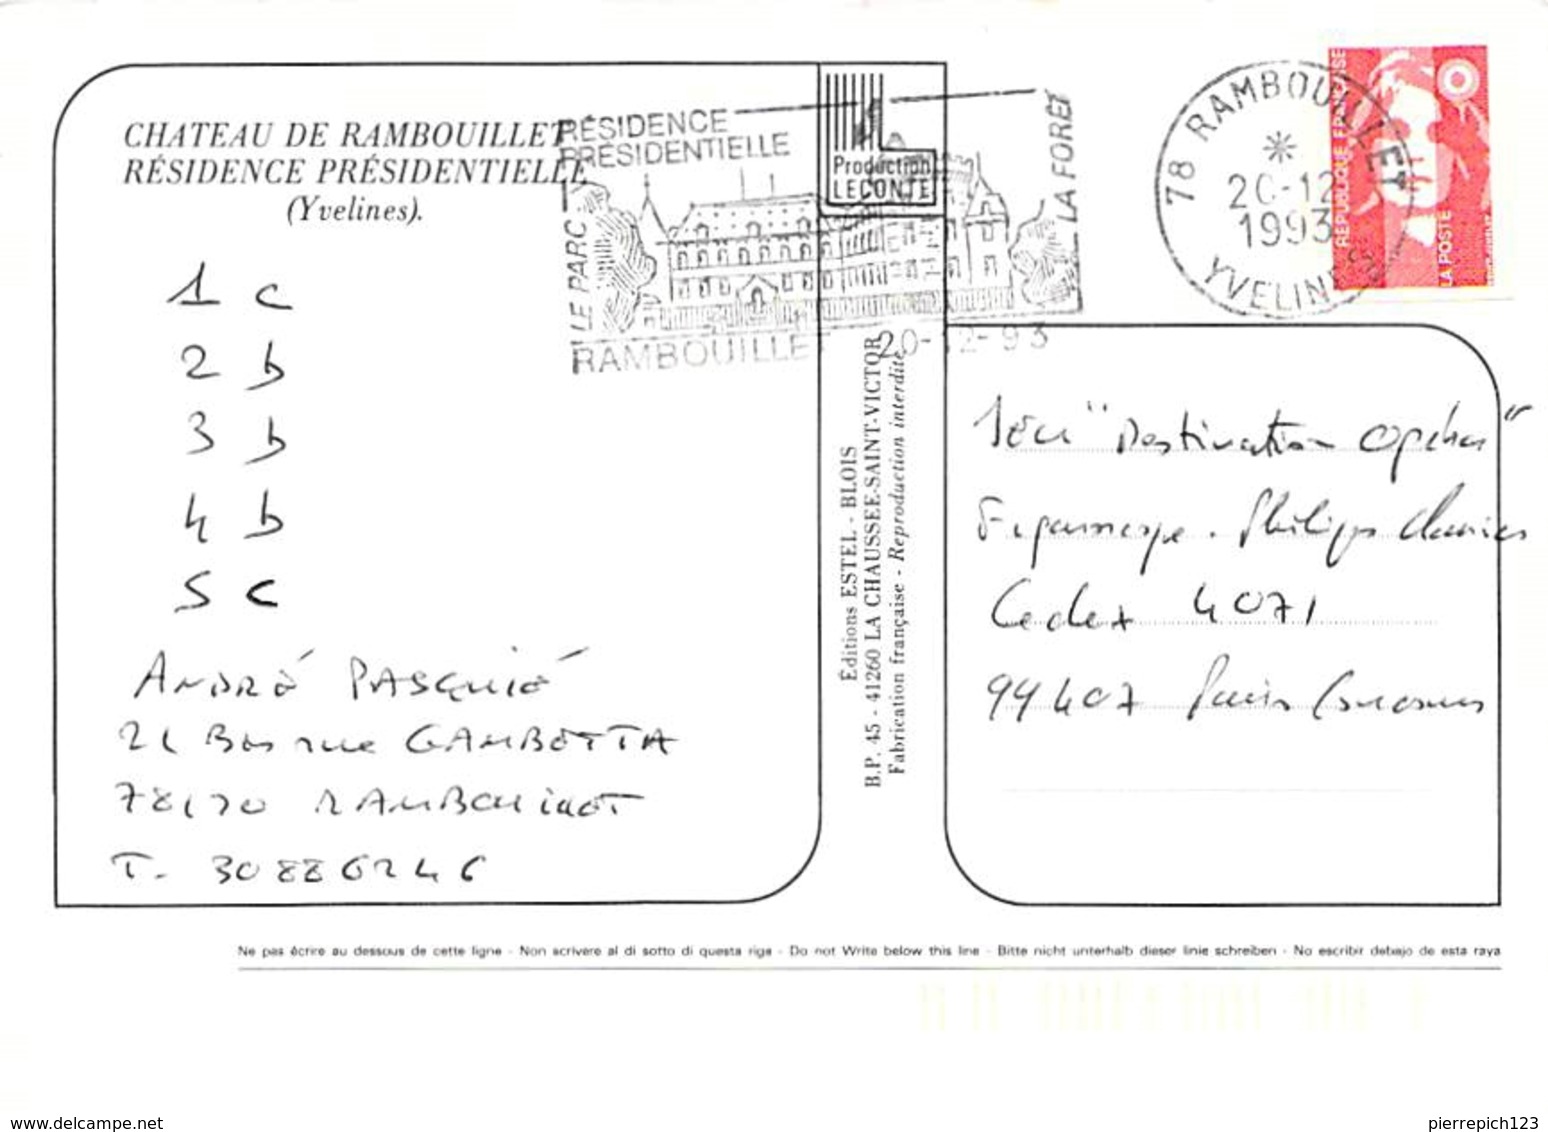 CHATEAU DE RAMBOUILLET
RÉSIDENCE PRÉSIDENTIELLE
(Yvelines).
1 c
2 b
3 b
4 b
5 c
ANDRÉ PASQUIÉ
21 Bis rue GAMBETTA
78120 RAMBOUILLET
T. 30886246
RÉSIDENCE
PRÉSIDENTIELLE
LE PARC
LA FORÊT
RAMBOUILLET 20-12-93
Production
LECONTE
Éditions ESTEL - BLOIS
B.P. 45 - 41260 LA CHAUSSEE-SAINT-VICTOR
Fabrication française - Reproduction interdite
78 RAMBOUILLET
20-12
1993
YVELINES
REPUBLIQUE FRANÇAISE
LA POSTE
Jeu "Destination Opéra"
Cedex 4071
99407 Paris Concours
Ne pas écrire au dessous de cette ligne - Non scrivere al di sotto di questa riga - Do not Write below this line - Bitte nicht unterhalb dieser linie schreiben - No escribir debajo de esta raya
www.delcampe.net
pierrepich123